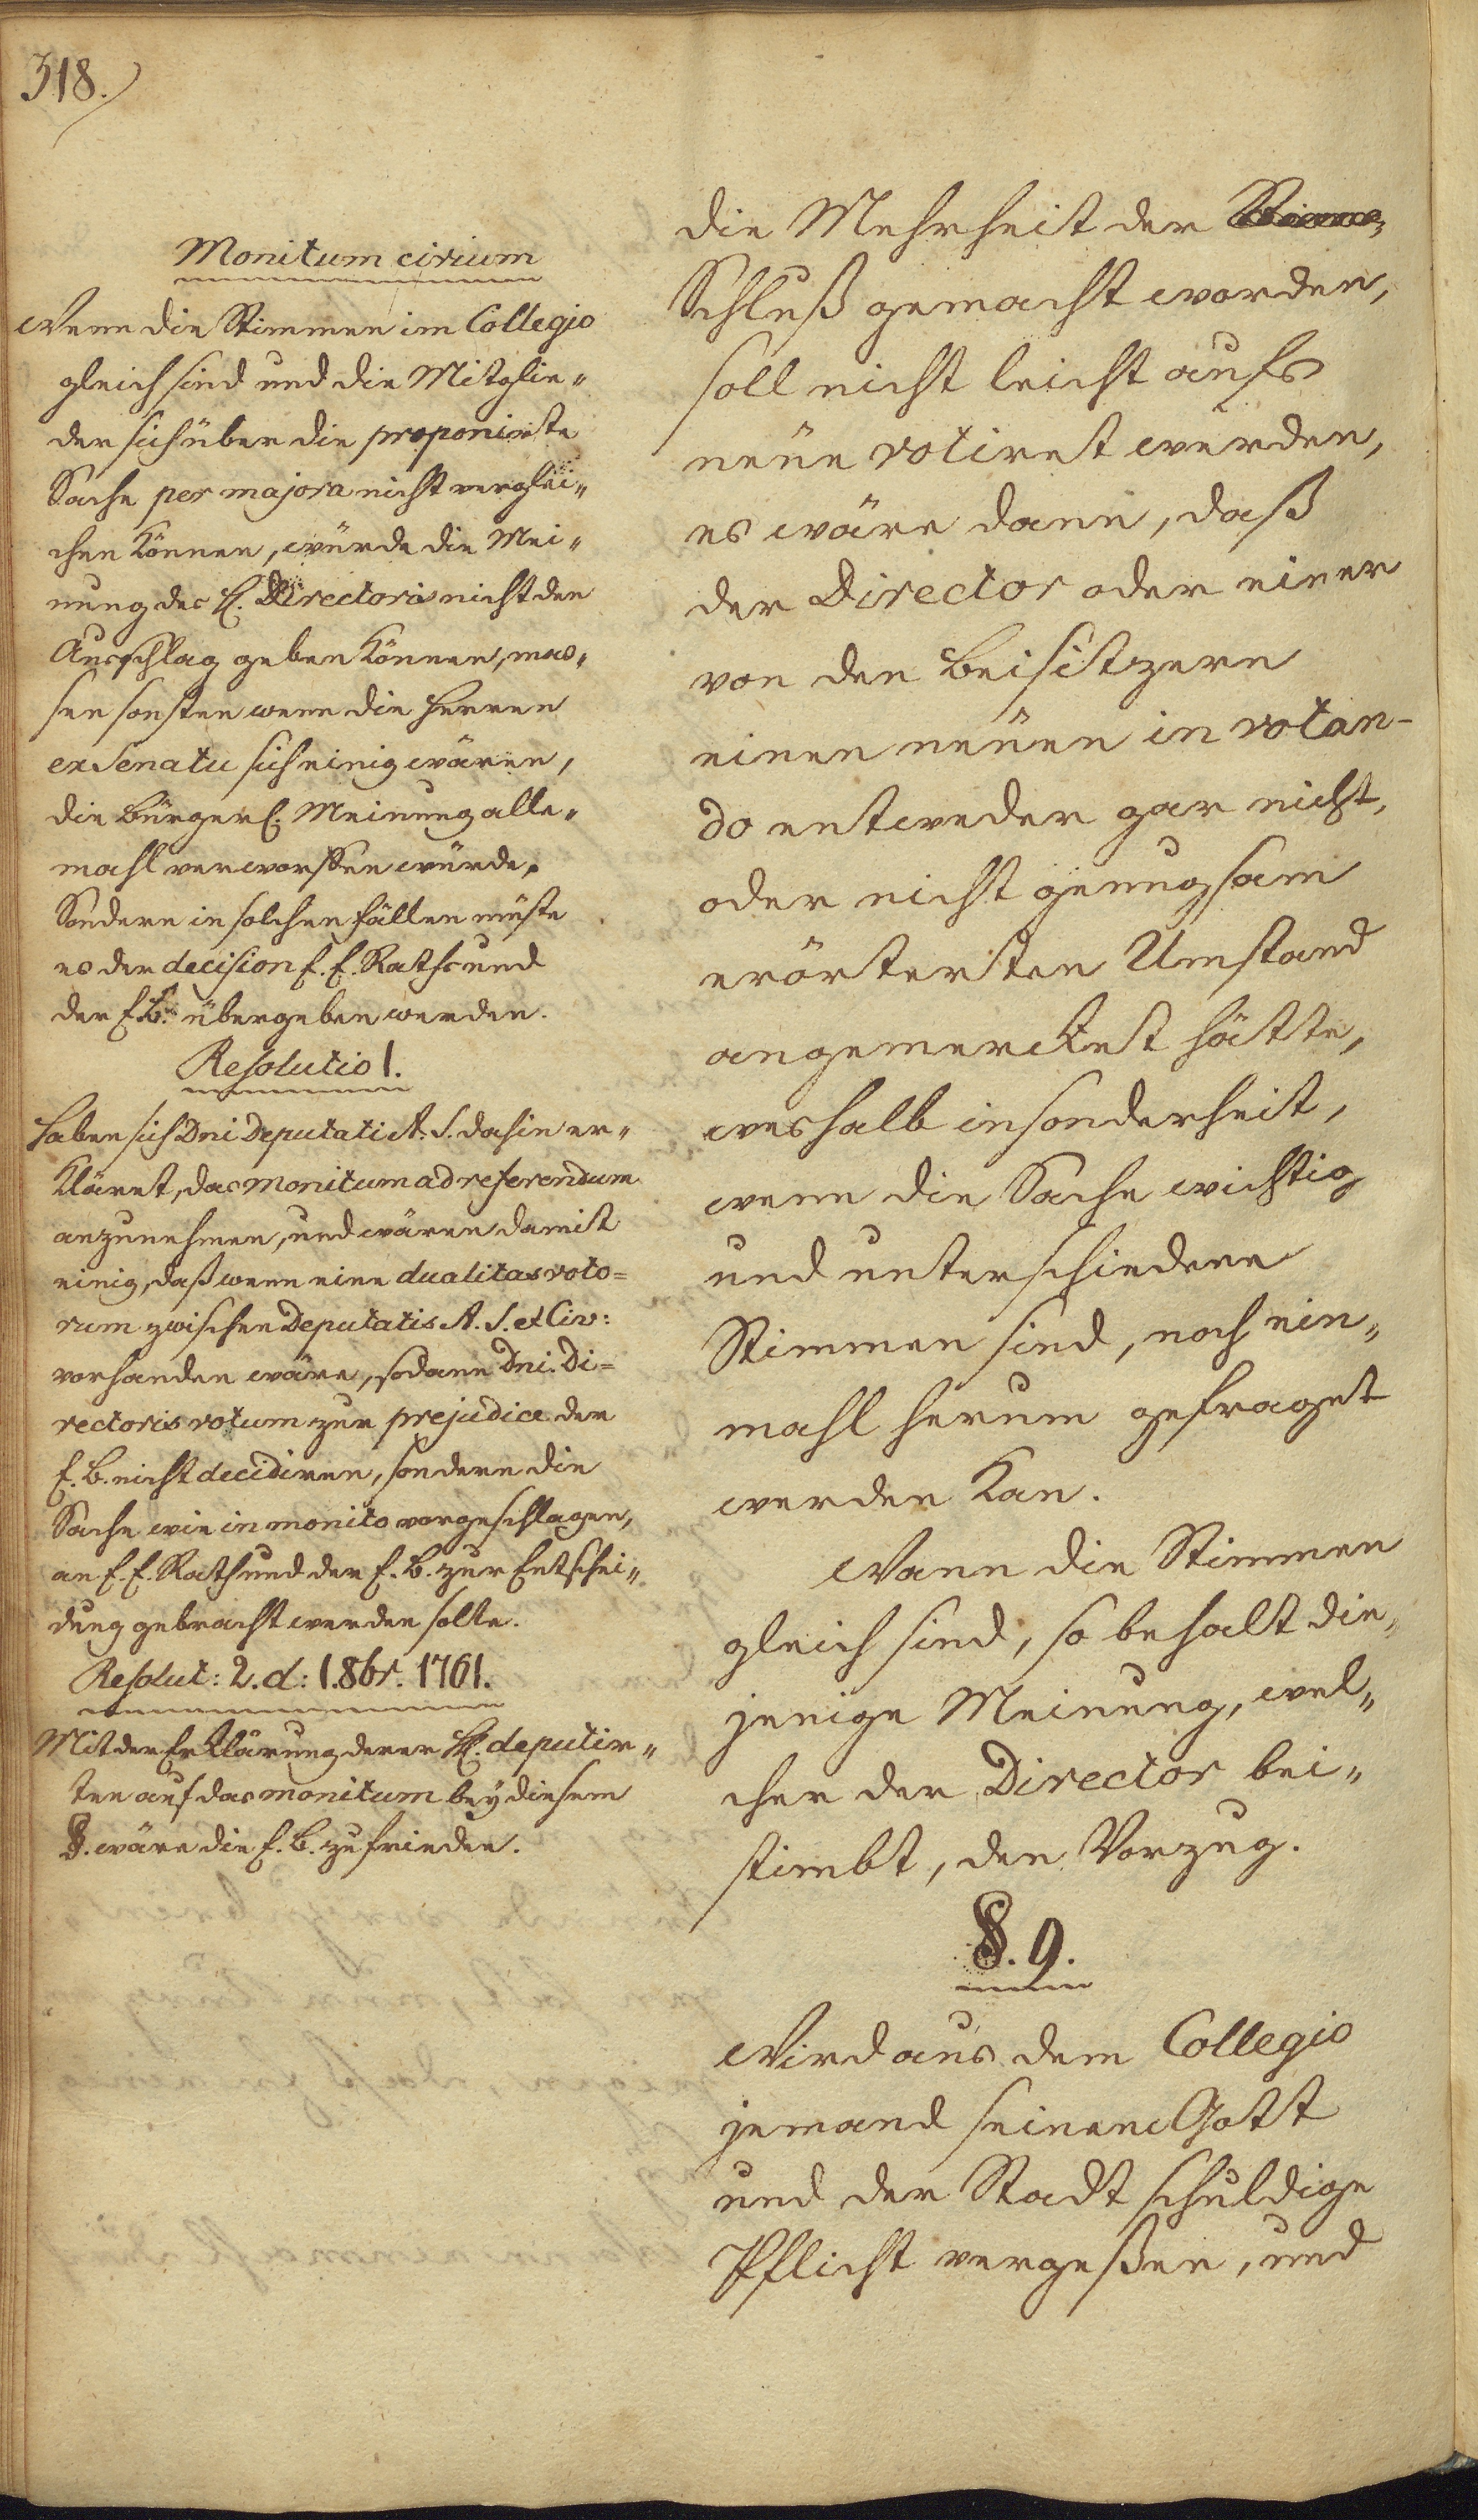 318.
Monitum civium
Wenn die Stimmen im Collegio
gleich sind und die Mitglie„
der sich über die proponirte
Sache per majora nicht verglei„
chen können, würde die Mei„
nung des H. Directoris nicht den
Ausschlag geben können, mas„
sen sonsten wenn die Herren
ex Senatu sich einig wären,
die bürgerl. Meinung alle„
mahl verworffen würde,
Sondern in solchen fällen müste
es der decision E. E. Raths und
der E. B. übergeben werden.
Resolutio 1.
Haben sich Dni Deputati A. S. dahin er„
kläret, das monitum ad referendum
anzunehmen, und wären damit
einig, daß wenn eine dualitas voto=
rum zwischen Deputatis A. S. et Civ:
vorhanden wäre, sodann Dni. Di=
rectoris votum zur prejudice der
E. B. nicht decidiren, sondern die
Sache wie in monito vorgeschlagen,
an E. E. Rath und der E. B. zur Entschei„
dung gebracht werden solte.
Resolut: 2. d: 1. 8br. 1761.
Mit der Erklärung derer HH. deputir„
ten auf das monitum bey diesem
§. wäre die E. B. zufrieden.
die Mehrheit der
Schluß gemacht worden,
soll nicht leicht aufs
neüe votiret werden,
es wäre dann, daß
der Director oder einer
von den Beisitzern
einen neüen in votan-
do entweder gar nicht,
oder nicht genugsam
erörterten Umstand
angemercket hätte,
weshalb insonderheit,
wenn die Sache wichtig
und unterschiedene
Stimmen sind, noch ein„
mahl herum gefraget
werden kan.
Wann die Stimmen
gleich sind, so behalt die„
jenige Meinung, wel„
cher der Director bei„
stimbt, den Vorzug.
§. 9.
Wird aus dem Collegio
jemand seinem Gott
und der Stadt schuldige
Pflicht vergeßen, und